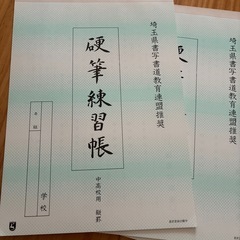 埼玉県書写書道教育連盟推奨
硬筆練習帳
中高校用 縦罫
学校
埼玉県書写書道教育連盟推奨